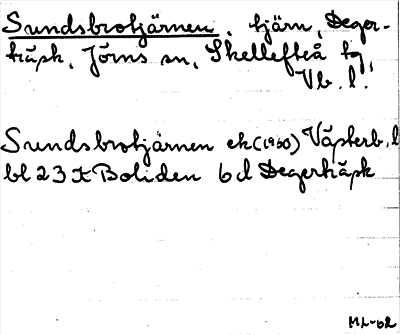 Sundsbrotjärnen, tjärn, Deger-
träsk, Jörns sn, Skellefteå tg,
Vb. l.
Sundsbrotjärnen ek (1960) Västerb. l
bl 23 K Boliden 6 d Degerträsk
ML-62